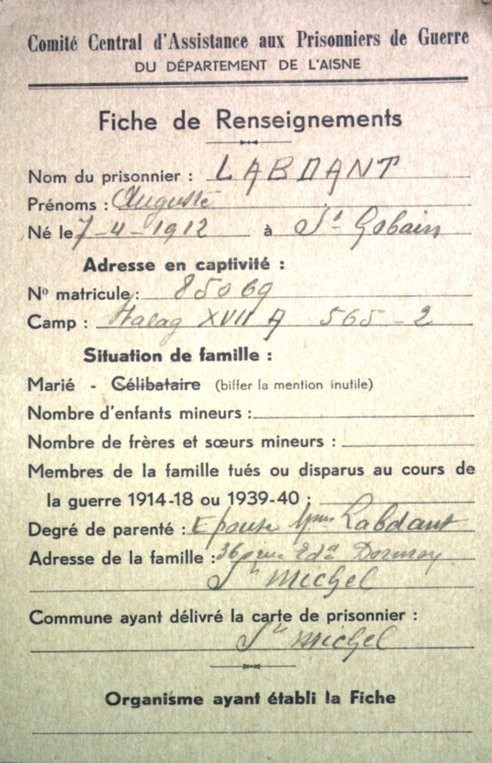 Comité Central d'Assistance aux Prisonniers de Guerre
DU DÉPARTEMENT DE L'AISNE
Fiche de Renseignements
Nom du prisonnier : LABDANT
Prénoms : Auguste
Né le 7-4-1912 à St Gobain
Adresse en captivité :
No matricule : 85069
Camp : Stalag XVII A 565-2
Situation de famille :
Marié - Célibataire (biffer la mention inutile)
Nombre d'enfants mineurs :
Nombre de frères et sœurs mineurs :
Membres de la famille tués ou disparus au cours de
la guerre 1914-18 ou 1939-40 :
Degré de parenté : Epouse Mme Labdant
Adresse de la famille : rue
Michel
Commune ayant délivré la carte de prisonnier :
Michel
Organisme ayant établi la Fiche